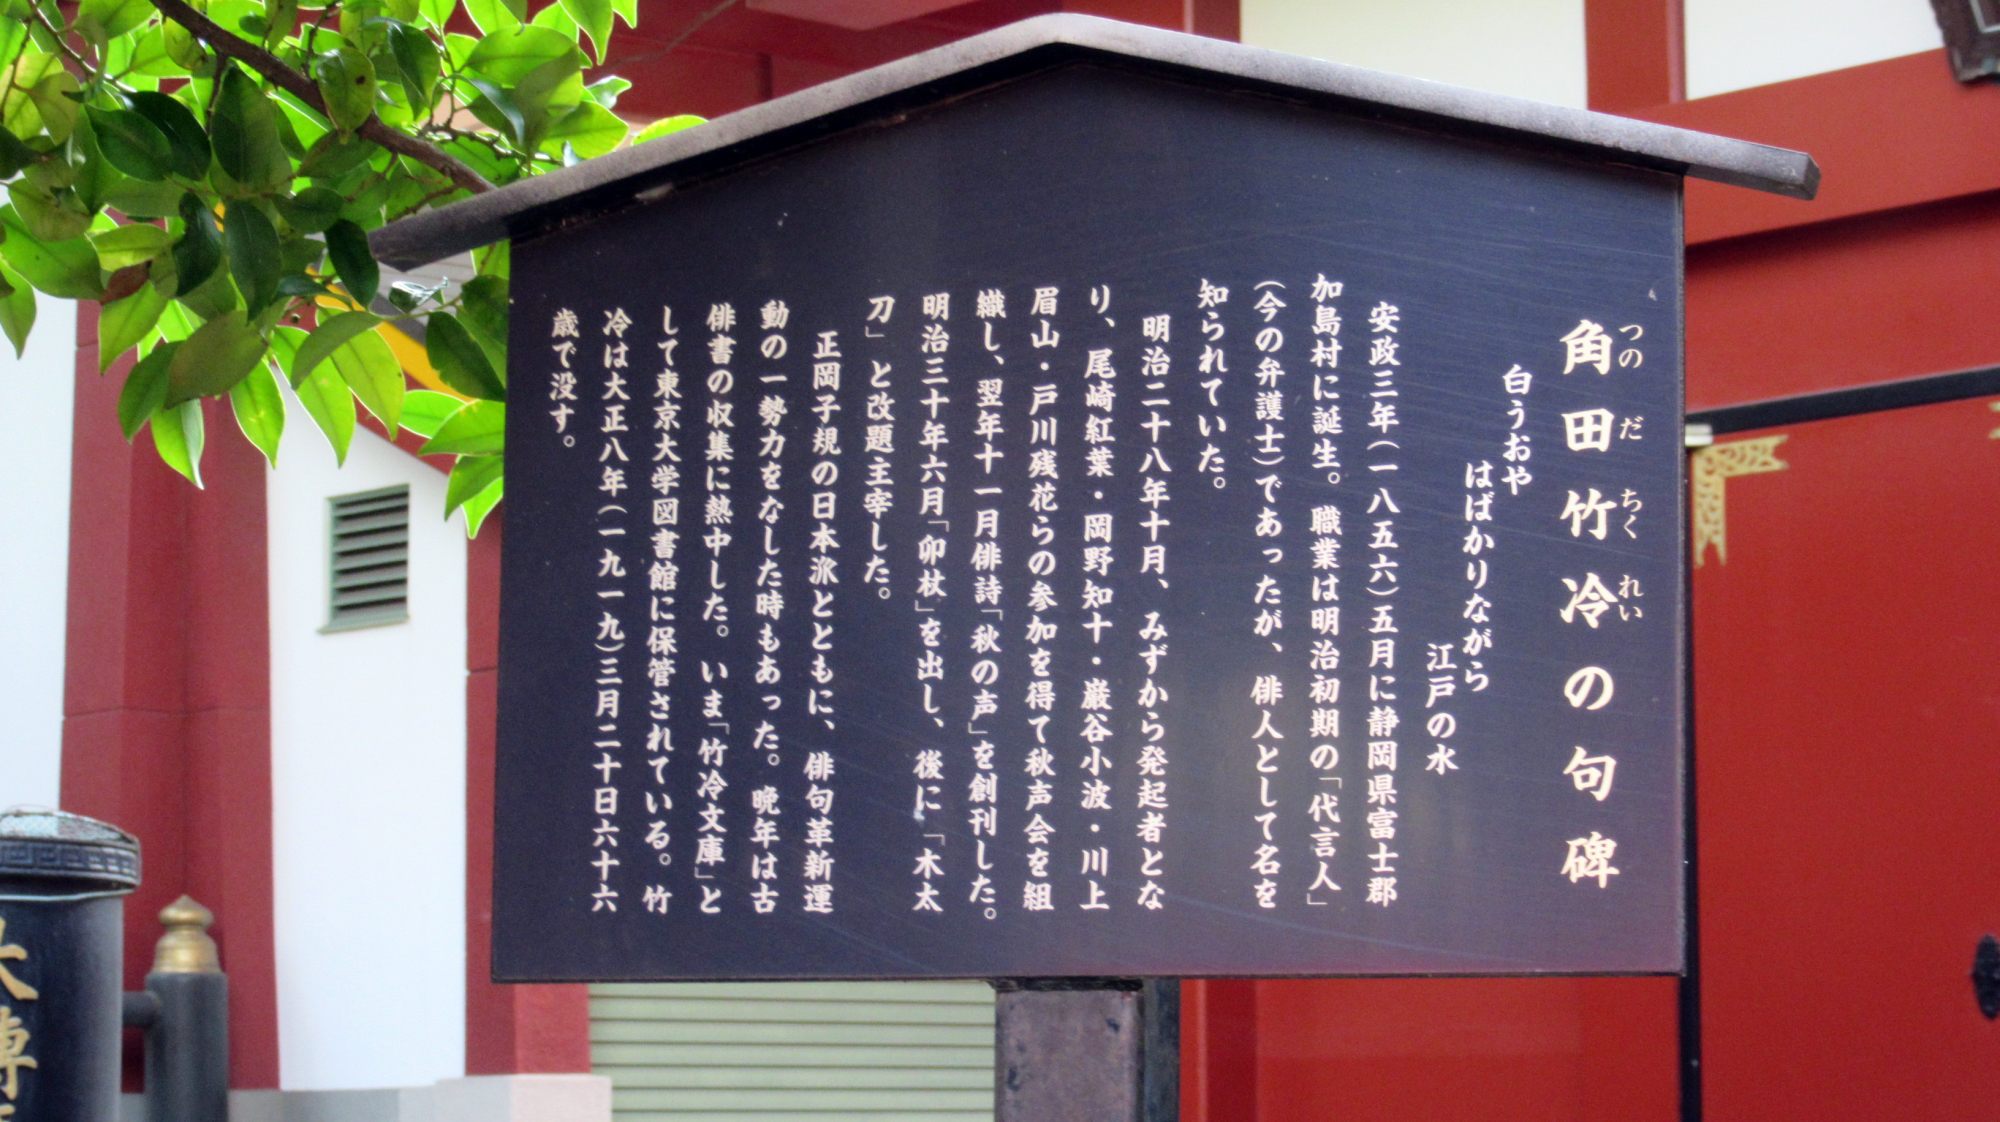 角田竹冷の句碑
つの だ ちく れい
白うおや
はばかりながら
江戸の水
安政三年(一八五六)五月に静岡県富士郡
加島村に誕生。職業は明治初期の「代言人」
(今の弁護士)であったが、俳人として名を
知られていた。
明治二十八年十月、みずから発起者とな
り、尾崎紅葉・岡野知十・巌谷小波・川上
眉山・戸川残花らの参加を得て秋声会を組
織し、翌年十一月俳詩「秋の声」を創刊した。
明治三十年六月「卯杖」を出し、後に「木太
刀」と改題主宰した。
正岡子規の日本派とともに、俳句革新運
動の一勢力をなした時もあった。晩年は古
俳書の収集に熱中した。いま「竹冷文庫」と
して東京大学図書館に保管されている。竹
冷は大正八年(一九一九)三月二十日六十六
歳で没す。